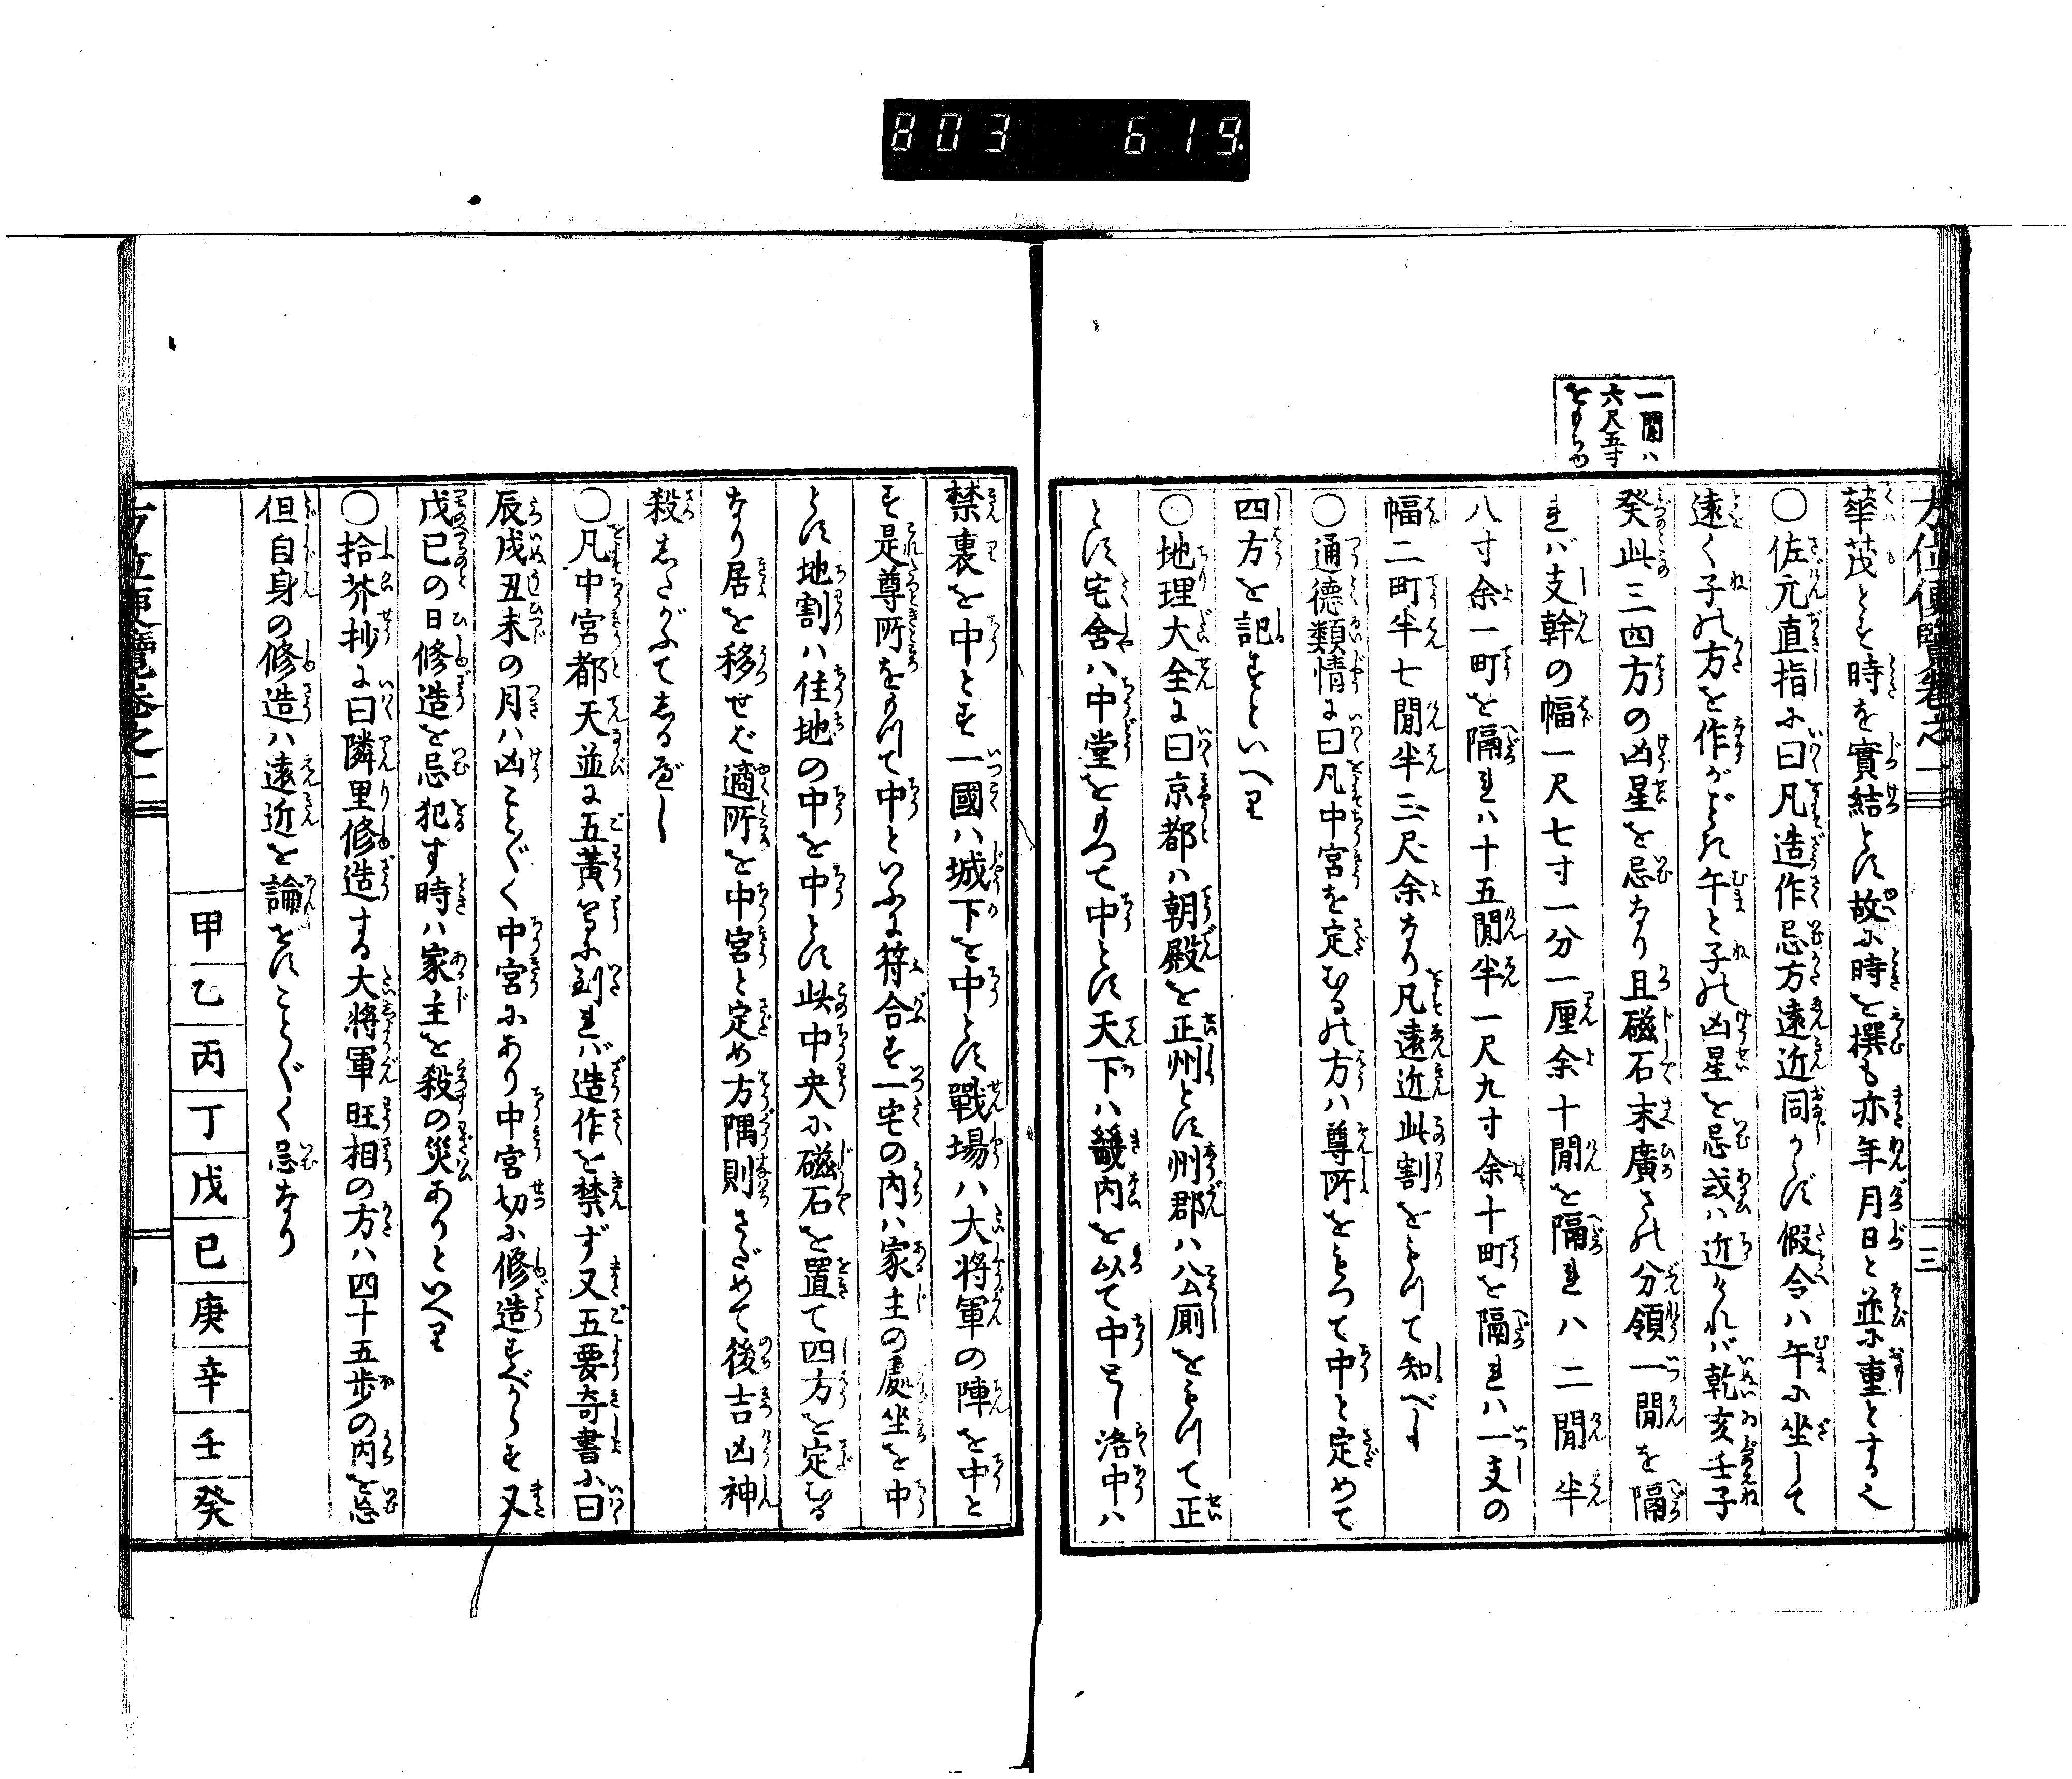 803 619
一間ハ
六尺五寸
をもちゆ
方位便覧巻之一
三
華茂とす時を實結とす故に時を撰も亦年月日と並に重とする也
○佐元直指に曰凡造作忌方遠近同からず假令ハ午に坐して
遠く子の方を作がごとき午と子の凶星を忌或ハ近けれバ乾亥壬子
癸此三四方の凶星を忌なり且磁石末廣さの分領一間を隔
れバ支幹の幅一尺七寸一分一厘余十間を隔れハ二間半
八寸余一町を隔れハ十五間半一尺九寸余十町を隔れハ一支の
幅二町半七間半三尺余なり凡遠近此割をもつて知べし
○通德類情に曰凡中宮を定むるの方ハ尊所をもつて中と定めて
四方を記すといへり
○地理大全に曰京都ハ朝殿を正州とす州郡ハ公廁をもつて正
とす宅舍ハ中堂をもつて中とす天下ハ畿内を以て中とし洛中ハ
禁裏を中とす一國ハ城下を中とす戰場ハ大将軍の陣を中と
す是尊所をもつて中といふに符合す一宅の内ハ家主の處坐を中
とす地割ハ住地の中を中とす此中央に磁石を置て四方を定むる
なり居を移せば適所を中宮と定め方隅則さだめて後吉凶神
殺したがふてしるべし
○凡中宮都天並に五黃等に到れバ造作を禁ず又五要奇書に曰
辰戌丑未の月ハ凶ことごとく中宮にあり中宮切に修造すべからず又
戊己の日修造を忌犯す時ハ家主を殺の災ありといへり
○拾芥抄に曰隣里修造する大将軍旺相の方ハ四十五歩の内を忌
但自身の修造ハ遠近を論ぜずことごとく忌なり
甲乙丙丁戊己庚辛壬癸
方位便覽巻之一